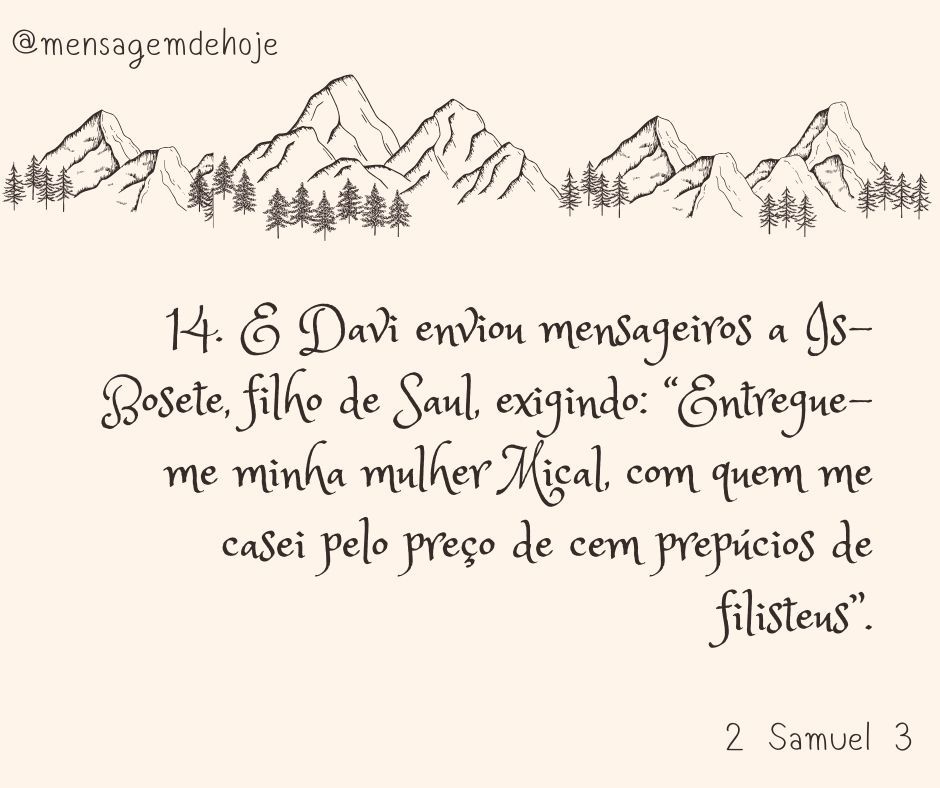 @mensagemdehoje
14. E Davi enviou mensageiros a Is-
Bosete, filho de Saul, exigindo: “Entregue-
me minha mulher Mical, com quem me
casei pelo preço de cem prepúcios de
filisteus”.
2 Samuel 3